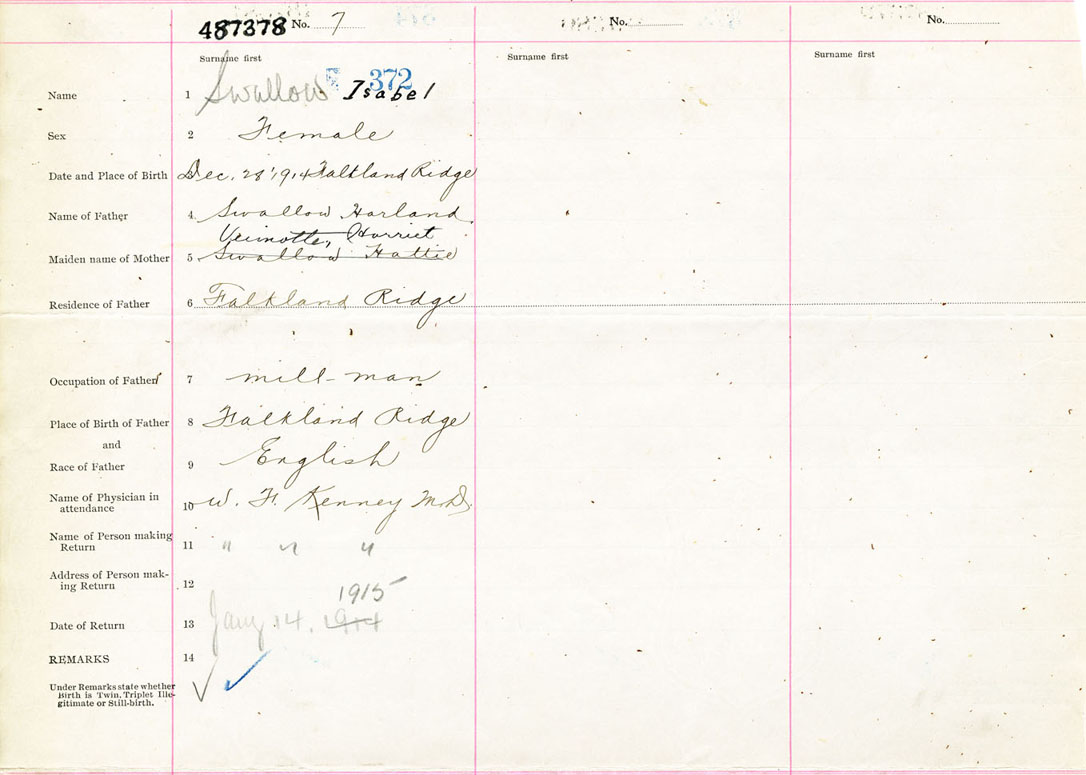 487378 No. 7
No.
No.
Surname first
Surname first
Surname first
372
Name 1 Swallow Isabel
Sex 2 Female
Date and Place of Birth Dec. 28' 1914 Falkland Ridge
Name of Father 4 Swallow Harland
Veinotte, Harriet
Maiden name of Mother 5 Swallow Hattie
Residence of Father 6 Falkland Ridge
Occupation of Father 7 mill-man
Place of Birth of Father 8 Falkland Ridge
and
Race of Father 9 English
Name of Physician in
attendance 10 W. H. Kenney M.D.
Name of Person making
Return 11 " " "
Address of Person mak-
ing Return 12
1915
Date of Return 13 Jany 14, 1914
REMARKS 14
Under Remarks state whether
Birth is Twin, Triplet Ille-
gitimate or Still-birth.